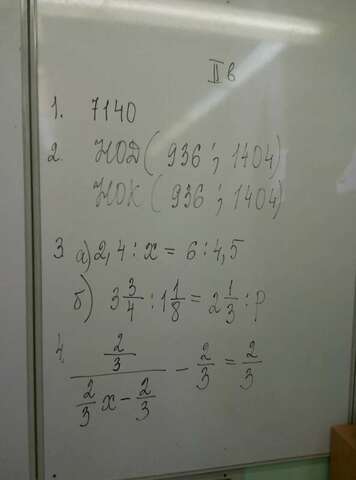 II в
1. 7140
2. НОД (936; 1404)
НОК (936; 1404)
3 а) 2,4 : x = 6 : 4,5
б) 3 3/4 : 1 1/8 = 2 1/3 : p
4. (2/3)/(2/3 x - 2/3) - 2/3 = 2/3